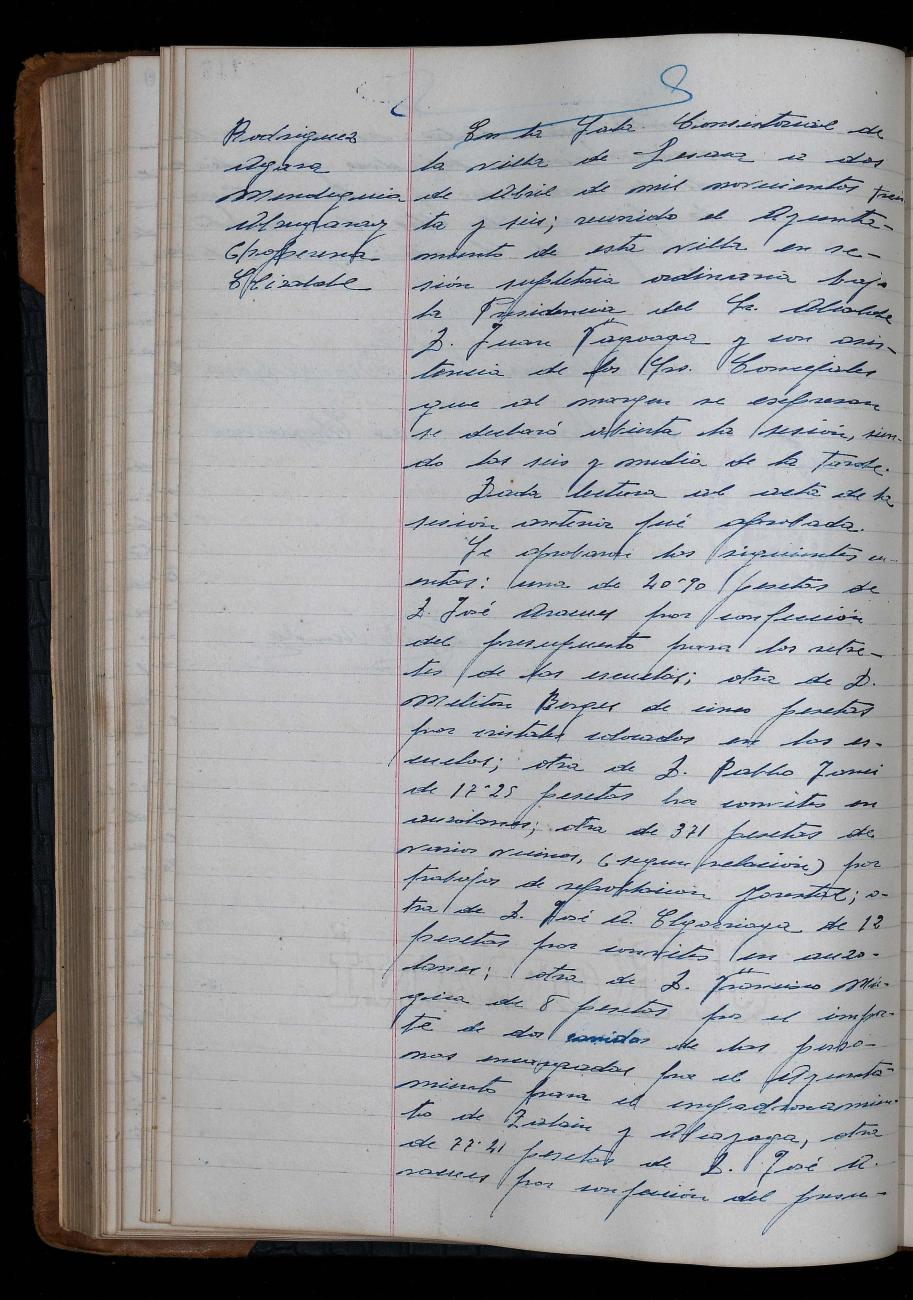 Rodriguez
Agara
Mendeguia
Almandoz
Elizalde
En la Sala Consistorial de
la villa de Lesaca a dos
de Abril de mil novecientos trein
ta y seis; reunido el Ayunta-
miento de esta villa en se-
sión supletoria ordinaria bajo
la Presidencia del Sr. Alcalde
D. Juan Tapoaga y con asis-
tencia de los Srs. Concejales
que al margen se expresan
se declaró abierta la sesión, sien-
do las seis y media de la tarde.
Dada lectura al acta de la
sesión anterior fué aprobada.
Se aprobaron las siguientes cu-
entas: una de 20'90 pesetas de
D. José Araces por confección
del presupuesto para los retre-
tes de las escuelas; otra de D.
Meliton Berges de cinco pesetas
por cristales colocados en las es-
cuelas; otra de D. Pablo
de 17'25 pesetas por convites en
auzolanes; otra de 371 pesetas de
varios vecinos, (segun relación) por
trabajos de repoblacion forestal; o-
tra de D. José A. Elgorriaga de 12
pesetas por convites en auzo-
lanes; otra de D. Francisco Mu-
gica de 8 pesetas por el impor-
te de dos comidas de las perso-
nas encargadas por el Ayunta-
miento para el empadronamien-
to de Zalain y Alcayaga; otra
de 77'21 pesetas de D. José A-
races por confección del presu-